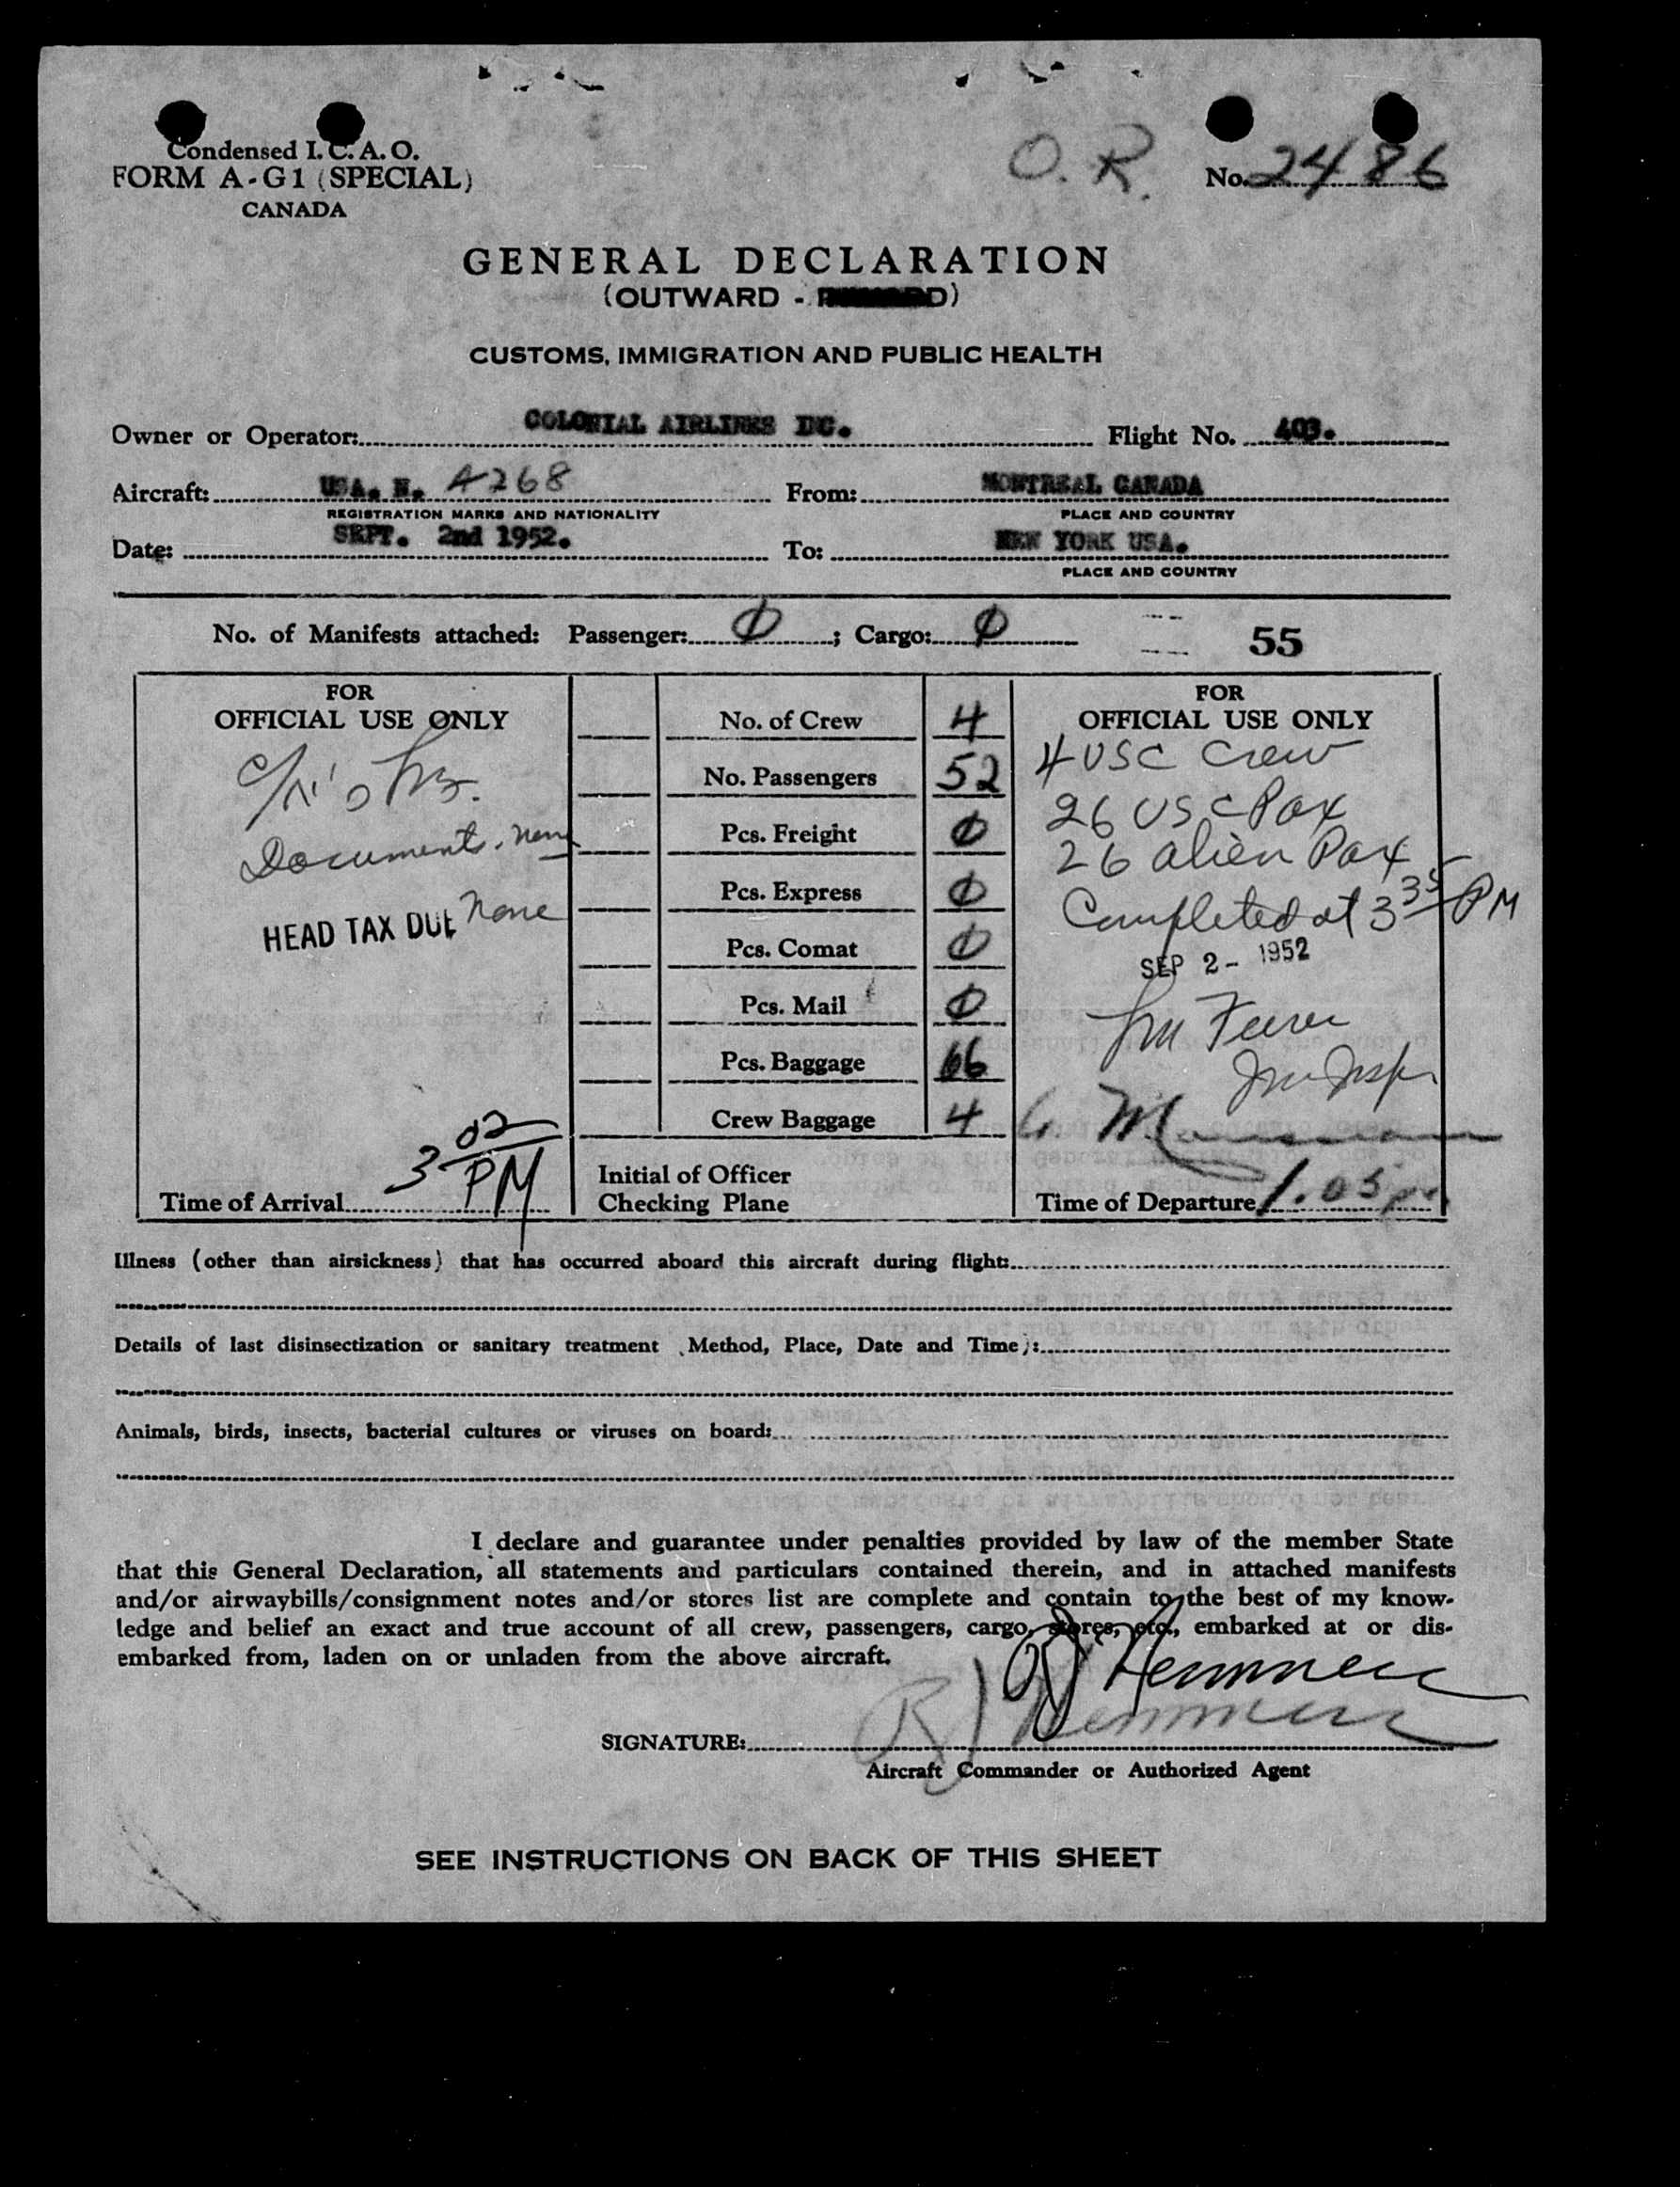 Condensed I. C. A. O.
FORM A-G1 (SPECIAL)
CANADA
O. R.
No. 2486
GENERAL DECLARATION
(OUTWARD -
CUSTOMS, IMMIGRATION AND PUBLIC HEALTH
Owner or Operator: COLONIAL AIRLINES INC. Flight No. 403.
Aircraft: USA. N. A268 From: MONTREAL CANADA
REGISTRATION MARKS AND NATIONALITY PLACE AND COUNTRY
Date: SEPT. 2nd 1952. To: NEW YORK USA.
PLACE AND COUNTRY
No. of Manifests attached: Passenger: 0 ; Cargo: 0
55
FOR
OFFICIAL USE ONLY
Documents. None
HEAD TAX DUE None
Time of Arrival 3 02 PM
No. of Crew 4
No. Passengers 52
Pcs. Freight 0
Pcs. Express 0
Pcs. Comat 0
Pcs. Mail 0
Pcs. Baggage 66
Crew Baggage 4
Initial of Officer
Checking Plane
FOR
OFFICIAL USE ONLY
4 USC Crew
26 USC Pax
26 alien Pax
Completed at 3 35 PM
SEP 2 - 1952
Time of Departure 1.05 pm
Illness (other than airsickness) that has occurred aboard this aircraft during flight:
Details of last disinsectization or sanitary treatment (Method, Place, Date and Time):
Animals, birds, insects, bacterial cultures or viruses on board:
I declare and guarantee under penalties provided by law of the member State
that this General Declaration, all statements and particulars contained therein, and in attached manifests
and/or airwaybills/consignment notes and/or stores list are complete and contain to the best of my know-
ledge and belief an exact and true account of all crew, passengers, cargo, stores, etc., embarked at or dis-
embarked from, laden on or unladen from the above aircraft.
SIGNATURE:
Aircraft Commander or Authorized Agent
SEE INSTRUCTIONS ON BACK OF THIS SHEET